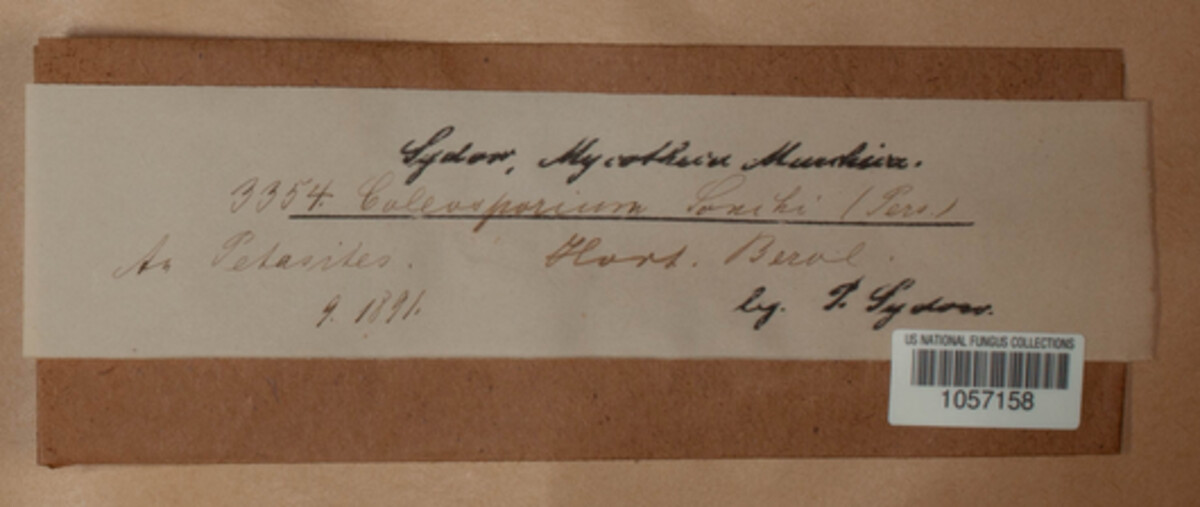 Sydow, Mycotheca Marchica.
3354. Coleosporium Sonchi (Pers.)
An Petasites. Hort. Berol.
9. 1891. leg. P. Sydow.
US NATIONAL FUNGUS COLLECTIONS
1057158